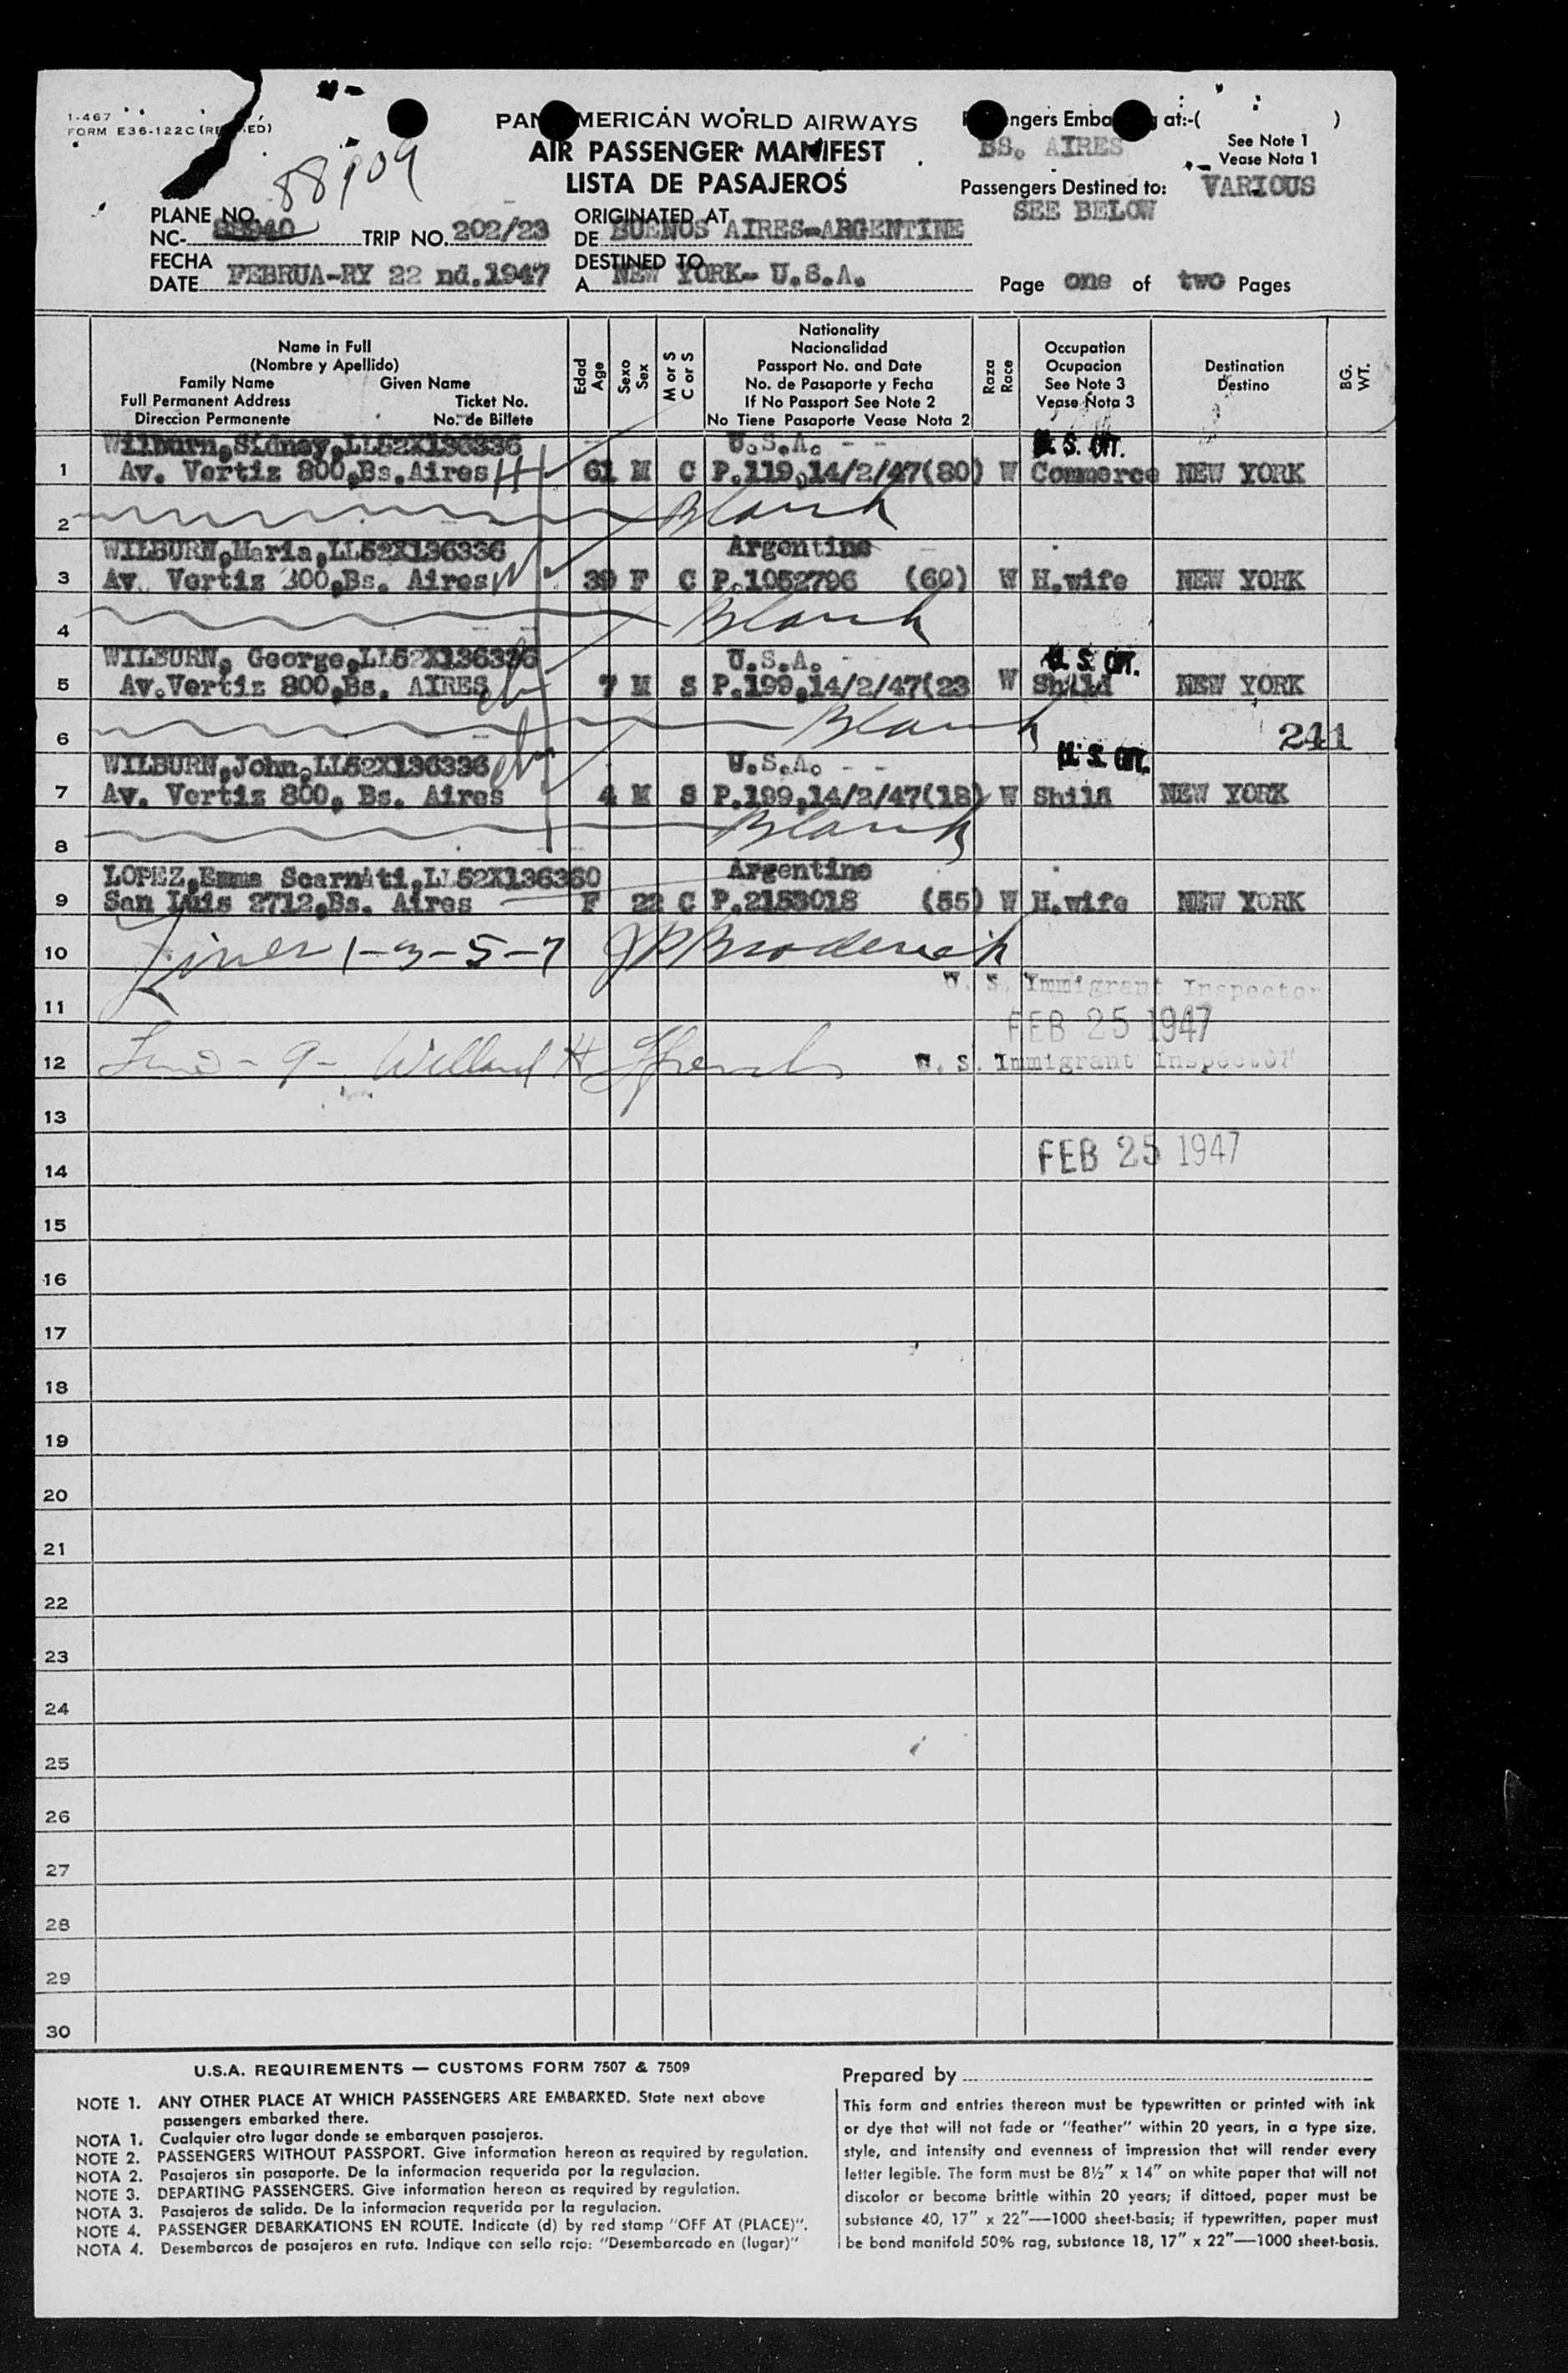 1-467
FORM E36-122C
88909
PAN AMERICAN WORLD AIRWAYS
AIR PASSENGER MANIFEST
LISTA DE PASAJEROS
Passengers Embarking at:-( )
BS. AIRES
See Note 1
Vease Nota 1
Passengers Destined to: VARIOUS
SEE BELOW
PLANE NO.
NC- TRIP NO. 202/23
ORIGINATED AT
DE BUENOS AIRES-ARGENTINE
FECHA
DATE FEBRUA-RY 22 nd.1947
DESTINED TO
A NEW YORK- U.S.A.
Page one of two Pages
Name in Full
(Nombre y Apellido)
Family Name Given Name
Full Permanent Address Ticket No.
Direccion Permanente No. de Billete
Edad
Age
Sexo
Sex
M or S
C or S
Nationality
Nacionalidad
Passport No. and Date
No. de Pasaporte y Fecha
If No Passport See Note 2
No Tiene Pasaporte Vease Nota 2
Raza
Race
Occupation
Ocupacion
See Note 3
Vease Nota 3
Destination
Destino
BG.
WT.
Wilburn,Sidney,LL52X136336 U.S.A. - - U. S. CIT.
1 Av. Vertiz 800,Bs.Aires 61 M C P.119,14/2/47(80) W Commerce NEW YORK
2 Blank
WILBURN,Maria,LL52X136336 Argentine
3 Av. Vertiz 800,Bs. Aires 39 F C P.1052796 (60) W H.wife NEW YORK
4 Blank
WILBURN, George,LL52X136336 U.S.A. - - U. S. CIT.
5 Av.Vertiz 800,Bs. AIRES 7 M S P.199,14/2/47(23 W Shild NEW YORK
6 Blank 241
WILBURN,John,LL52X136336 U.S.A. - - U. S. CIT.
7 Av. Vertiz 800, Bs. Aires 4 M S P.199,14/2/47(18) W Shild NEW YORK
8 Blank
LOPEZ,Emma Scarnati,LL52X136360 Argentine
9 San Luis 2712,Bs. Aires F 22 C P.2153018 (55) W H.wife NEW YORK
10 Lines 1-3-5-7 JP Broderick
U. S. Immigrant Inspector
11 FEB 25 1947
12 Line - 9 - Willard H U. S. Immigrant Inspector
13
14 FEB 25 1947
15
16
17
18
19
20
21
22
23
24
25
26
27
28
29
30
U.S.A. REQUIREMENTS — CUSTOMS FORM 7507 & 7509
NOTE 1. ANY OTHER PLACE AT WHICH PASSENGERS ARE EMBARKED. State next above
passengers embarked there.
NOTA 1. Cualquier otro lugar donde se embarquen pasajeros.
NOTE 2. PASSENGERS WITHOUT PASSPORT. Give information hereon as required by regulation.
NOTA 2. Pasajeros sin pasaporte. De la informacion requerida por la regulacion.
NOTE 3. DEPARTING PASSENGERS. Give information hereon as required by regulation.
NOTA 3. Pasajeros de salida. De la informacion requerida por la regulacion.
NOTE 4. PASSENGER DEBARKATIONS EN ROUTE. Indicate (d) by red stamp "OFF AT (PLACE)".
NOTA 4. Desembarcos de pasajeros en ruta. Indique con sello rojo: "Desembarcado en (lugar)"
Prepared by
This form and entries thereon must be typewritten or printed with ink
or dye that will not fade or "feather" within 20 years, in a type size,
style, and intensity and evenness of impression that will render every
letter legible. The form must be 8½" x 14" on white paper that will not
discolor or become brittle within 20 years; if dittoed, paper must be
substance 40, 17" x 22"—1000 sheet-basis; if typewritten, paper must
be bond manifold 50% rag, substance 18, 17" x 22"—1000 sheet-basis.